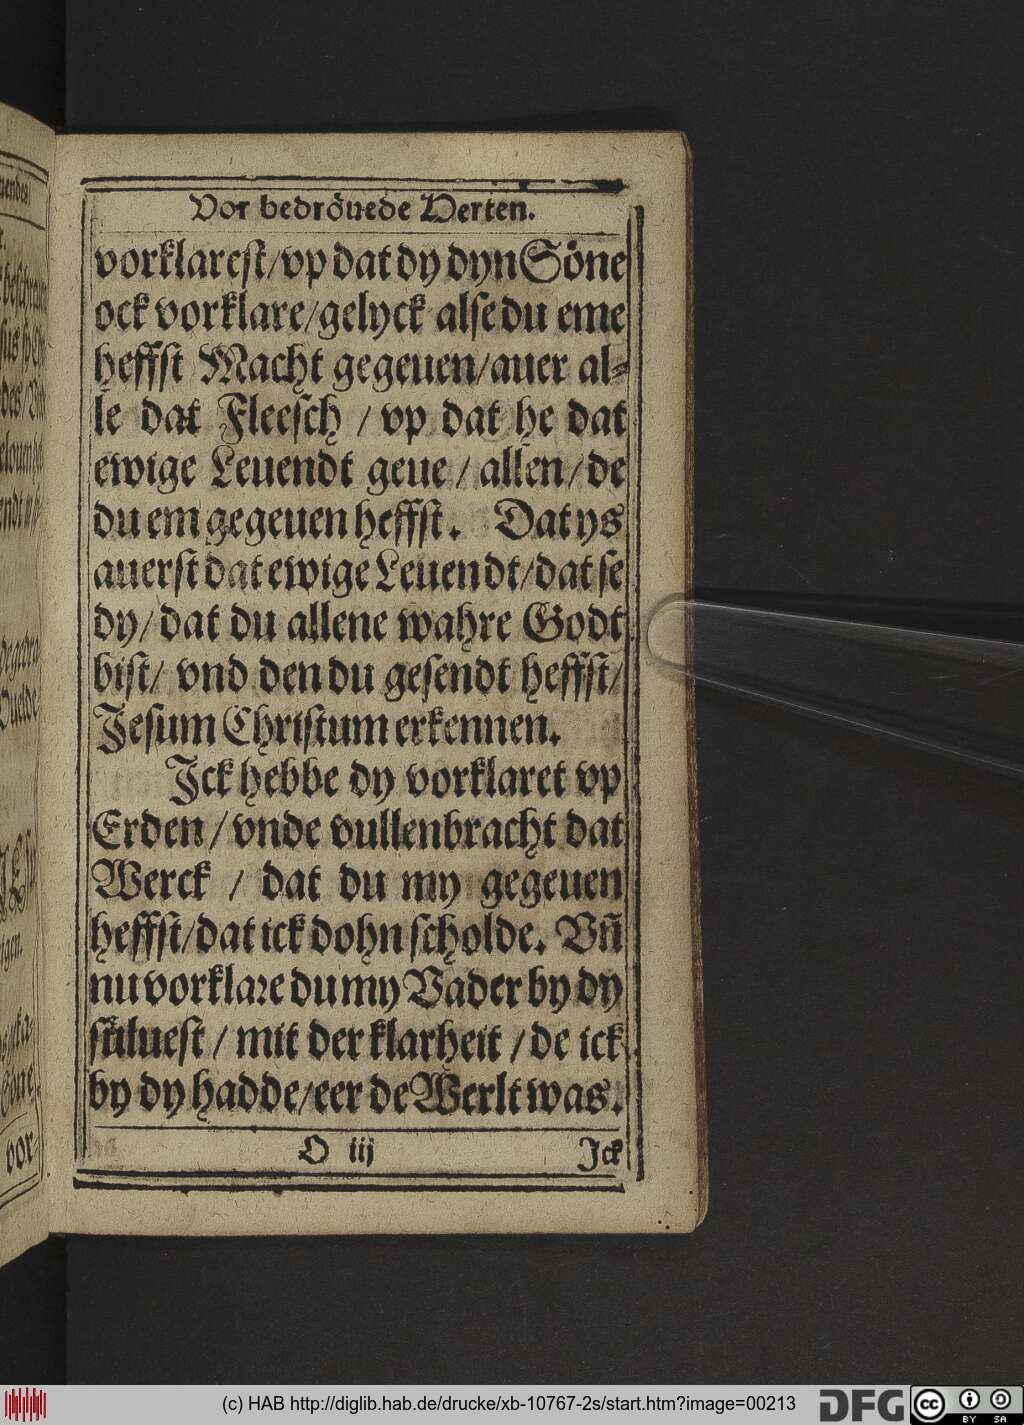 Vor bedröuede Herten.
vorklarest/vp dat dy dyn Söne
ock vorklare/gelyck alse du eme
heffst Macht gegeuen/auer al-
le dat Fleesch / vp dat he dat
ewige Leuendt geue / allen/de
du em gegeuen heffst. Dat ys
auerst dat ewige Leuendt/dat se
dy/dat du allene wahre Godt
bist/ vnd den du gesendt heffst/
Jesum Christum erkennen.
Jck hebbe dy vorklaret vp
Erden/vnde vullenbracht dat
Werck / dat du my gegeuen
heffst/dat ick dohn scholde. Vñ
nu vorklare du my Vader by dy
süluest / mit der klarheit /de ick
by dy hadde/eer de Werlt was.
O iij Jck
vor-
(c) HAB http://diglib.hab.de/drucke/xb-10767-2s/start.htm?image=00213
DFG
cc BY SA